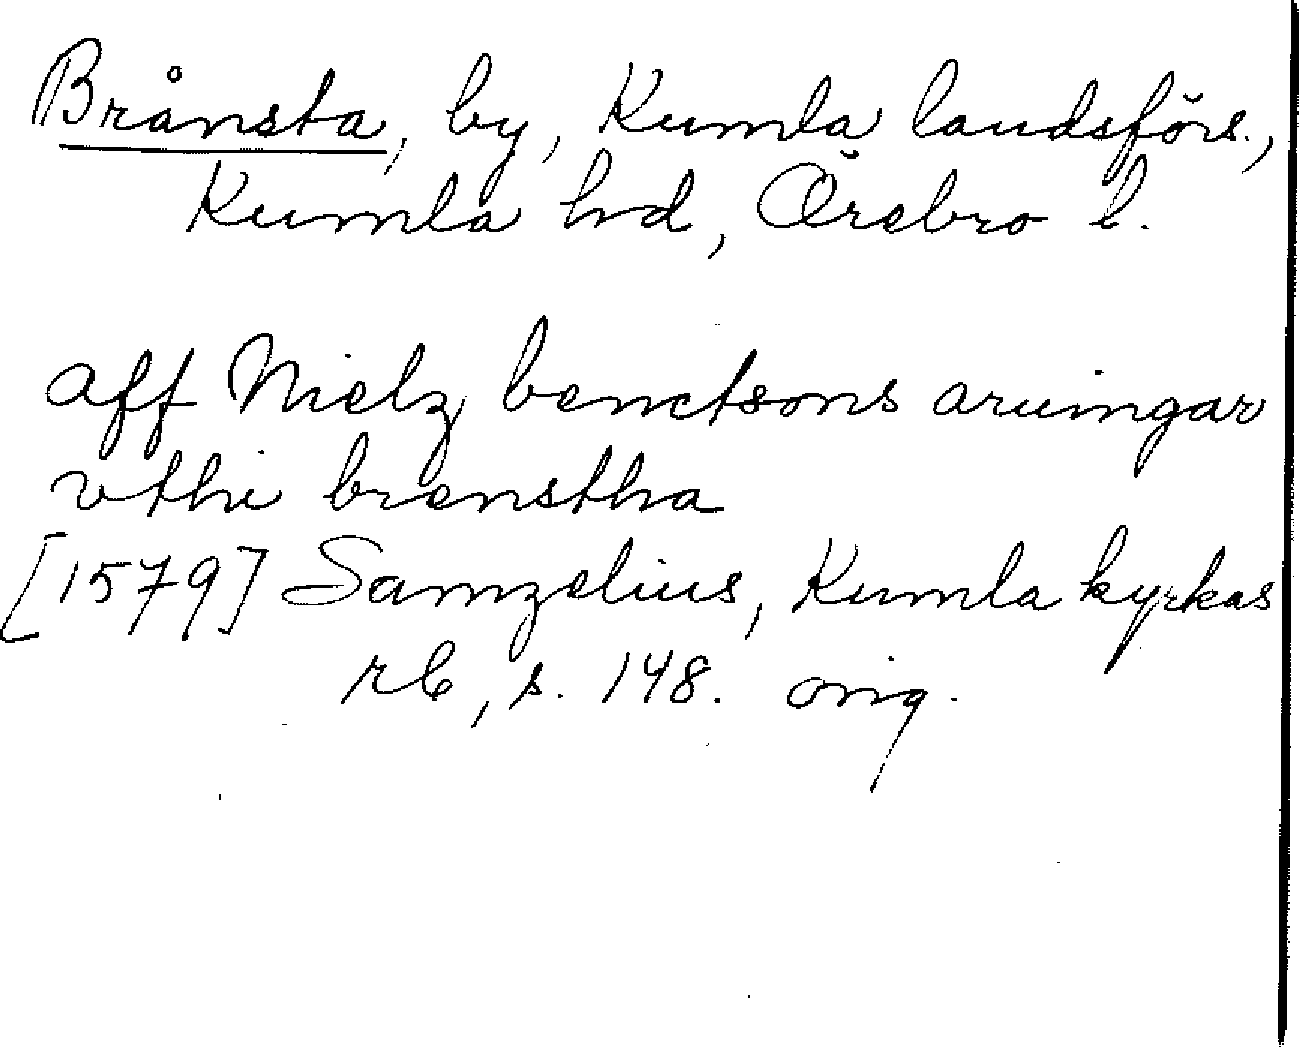 Brånsta, by, Kumla landsförs.,
Kumla hd, Örebro l.
aff Nielz benctsons aruingar
vthi brenstha
[1579] Samzelius, Kumla kyrkas
rb, s. 148. orig.